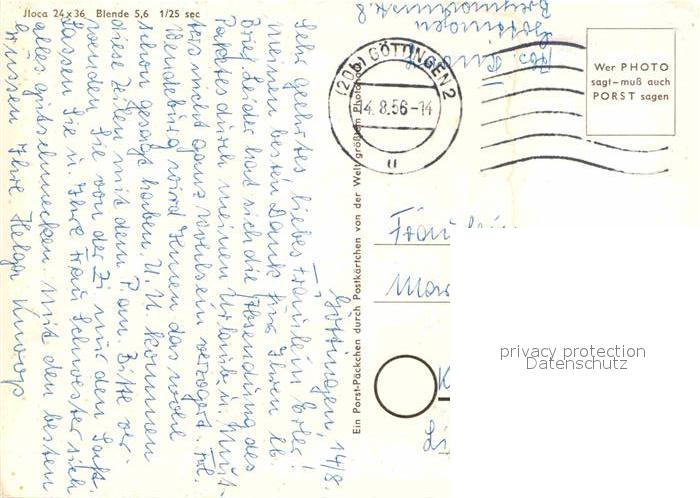 Jloca 24x36 Blende 5,6 1/25 sec
Göttingen, 14/8.
Sehr geehrtes liebes Fräulein
meinen besten Dank für Ihren lb.
Brief. Leider hat sich die Absendung des
Paketes durch meinen Urlaub u. Mut-
ters nicht ganz wohlsein verzögert.
wird Ihnen das wohl
schon gesagt haben. U. U. kommen
diese Zeilen mit dem P. an. Bitte ver-
wenden Sie von der Zi nur den Saft.
Lassen Sie u. Ihre Frau Schwester sich
alles gut schmecken. Mit den besten
Grüssen Ihre Helga Knoop
Ein Porst-Päckchen durch Postkärtchen von der Welt größtem Photohaus
Göttingen
(20b) GÖTTINGEN 2
14.8.56-14
u
Wer PHOTO
sagt-muß auch
PORST sagen
Fräulein
Mar
K
Li
privacy protection
Datenschutz